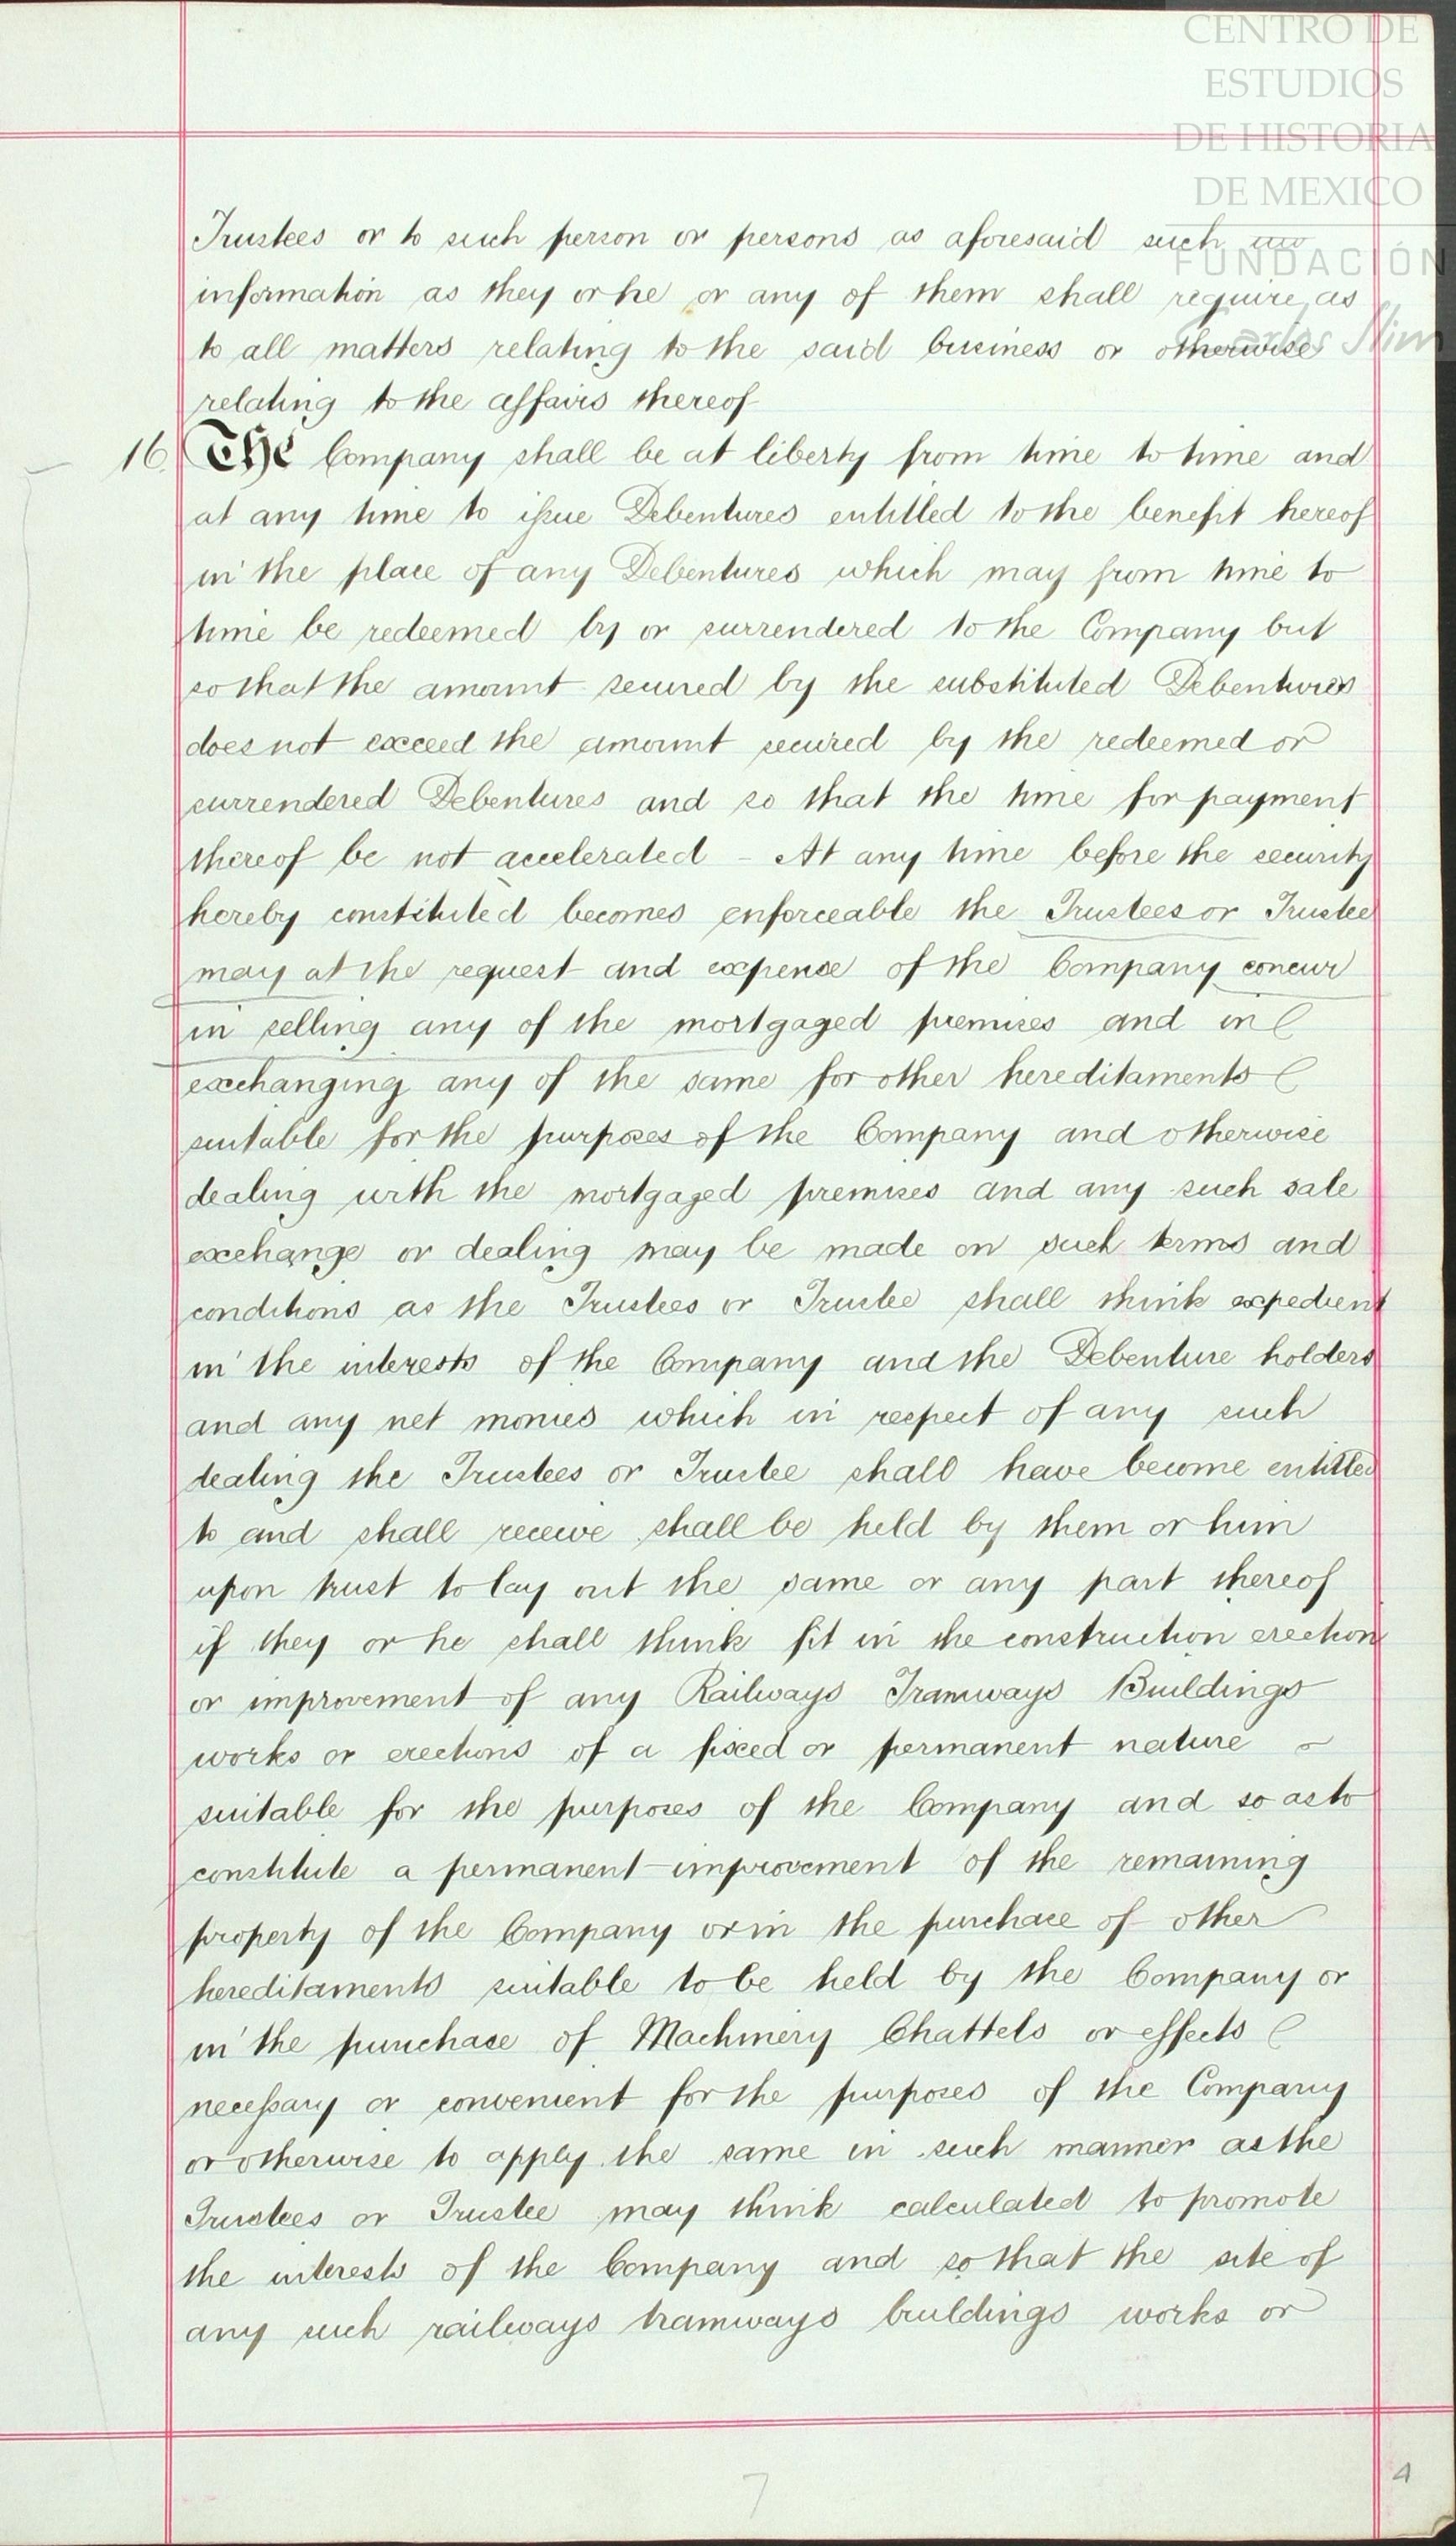 CENTRO DE
ESTUDIOS
DE HISTORIA
DE MEXICO
FUNDACIÓN
Carlos Slim
Trustees or to such person or persons as aforesaid such
information as they or he or any of them shall require as
to all matters relating to the said business or otherwise
relating to the affairs thereof
16. The Company shall be at liberty from time to time and
at any time to issue Debentures entitled to the benefit hereof
in the place of any Debentures which may from time to
time be redeemed by or surrendered to the Company but
so that the amount secured by the substituted Debentures
does not exceed the amount secured by the redeemed or
surrendered Debentures and so that the time for payment
thereof be not accelerated – At any time before the security
hereby constituted becomes enforceable the Trustees or Trustee
may at the request and expense of the Company concur
in selling any of the mortgaged premises and in
exchanging any of the same for other hereditaments
suitable for the purposes of the Company and otherwise
dealing with the mortgaged premises and any such sale
exchange or dealing may be made on such terms and
conditions as the Trustees or Trustee shall think expedient
in the interests of the Company and the Debenture holders
and any net monies which in respect of any such
dealing the Trustees or Trustee shall have become entitled
to and shall receive shall be held by them or him
upon trust to lay out the same or any part thereof
if they or he shall think fit in the construction erection
or improvement of any Railways Tramways Buildings
works or erections of a fixed or permanent nature
suitable for the purposes of the Company and so as to
constitute a permanent improvement of the remaining
property of the Company or in the purchase of other
hereditaments suitable to be held by the Company or
in the purchase of Machinery Chattels or effects
necessary or convenient for the purposes of the Company
or otherwise to apply the same in such manner as the
Trustees or Trustee may think calculated to promote
the interests of the Company and so that the site of
any such railways tramways buildings works or
7
4